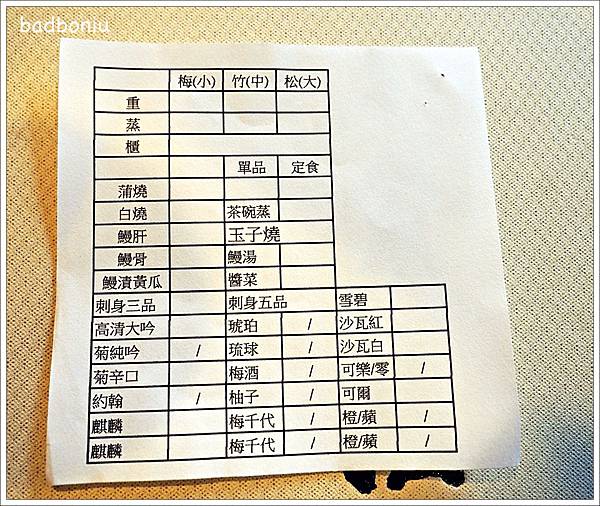 badboniu
梅(小) 竹(中) 松(大)
重
蒸
櫃
單品 定食
蒲燒
白燒 茶碗蒸
鰻肝 玉子燒
鰻骨 鰻湯
鰻漬黃瓜 醬菜
刺身三品 刺身五品 雪碧
高清大吟 琥珀 / 沙瓦紅
菊純吟 / 琉球 / 沙瓦白
菊辛口 梅酒 / 可樂/零 /
約翰 / 柚子 / 可爾
麒麟 梅千代 / 橙/蘋 /
麒麟 梅千代 / 橙/蘋 /